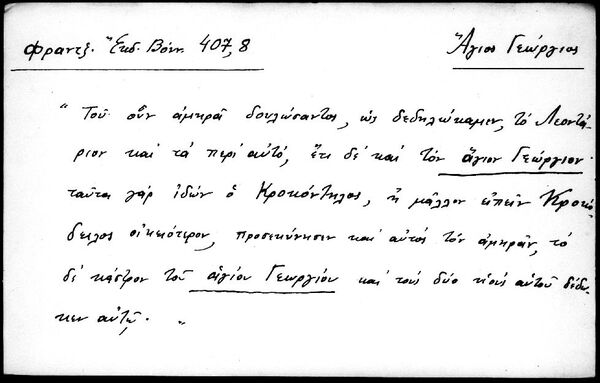 Φραντζ. Ἔκδ. Βόνν. 407,8
Ἅγιος Γεώργιος
"Τοῦ οὖν ἀμηρᾶ δουλώσαντος, ὡς δεδηλώκαμεν, τὸ Λεοντά-
ριον καὶ τὰ περὶ αὐτὸ, ἔτι δὲ καὶ τὸν ἅγιον Γεώργιον·
ταῦτα γὰρ ἰδὼν ὁ Κροκόντηλος, ἢ μᾶλλον εἰπεῖν Κροκό-
δειλος οἰκειότερον, προσεκύνησεν καὶ αὐτὸς τὸν ἀμηρᾶν, τὸ
δὲ κάστρον τοῦ ἁγίου Γεωργίου καὶ τοὺς δύο υἱοὺς αὐτοῦ δέδω-
κεν αὐτῷ. "